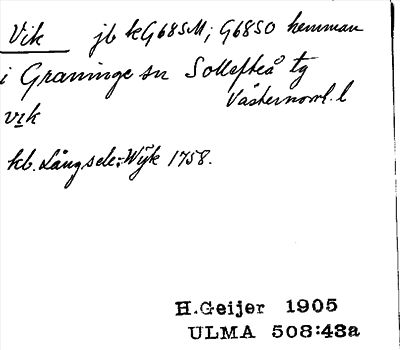 Vik jb kG68SM; G68SO hemman
i Graninge sn Sollefteå tg
Västernorrl. l
vı̲k
kb. Långsele: Wÿk 1758.
H.Geijer 1905
ULMA 508:48a